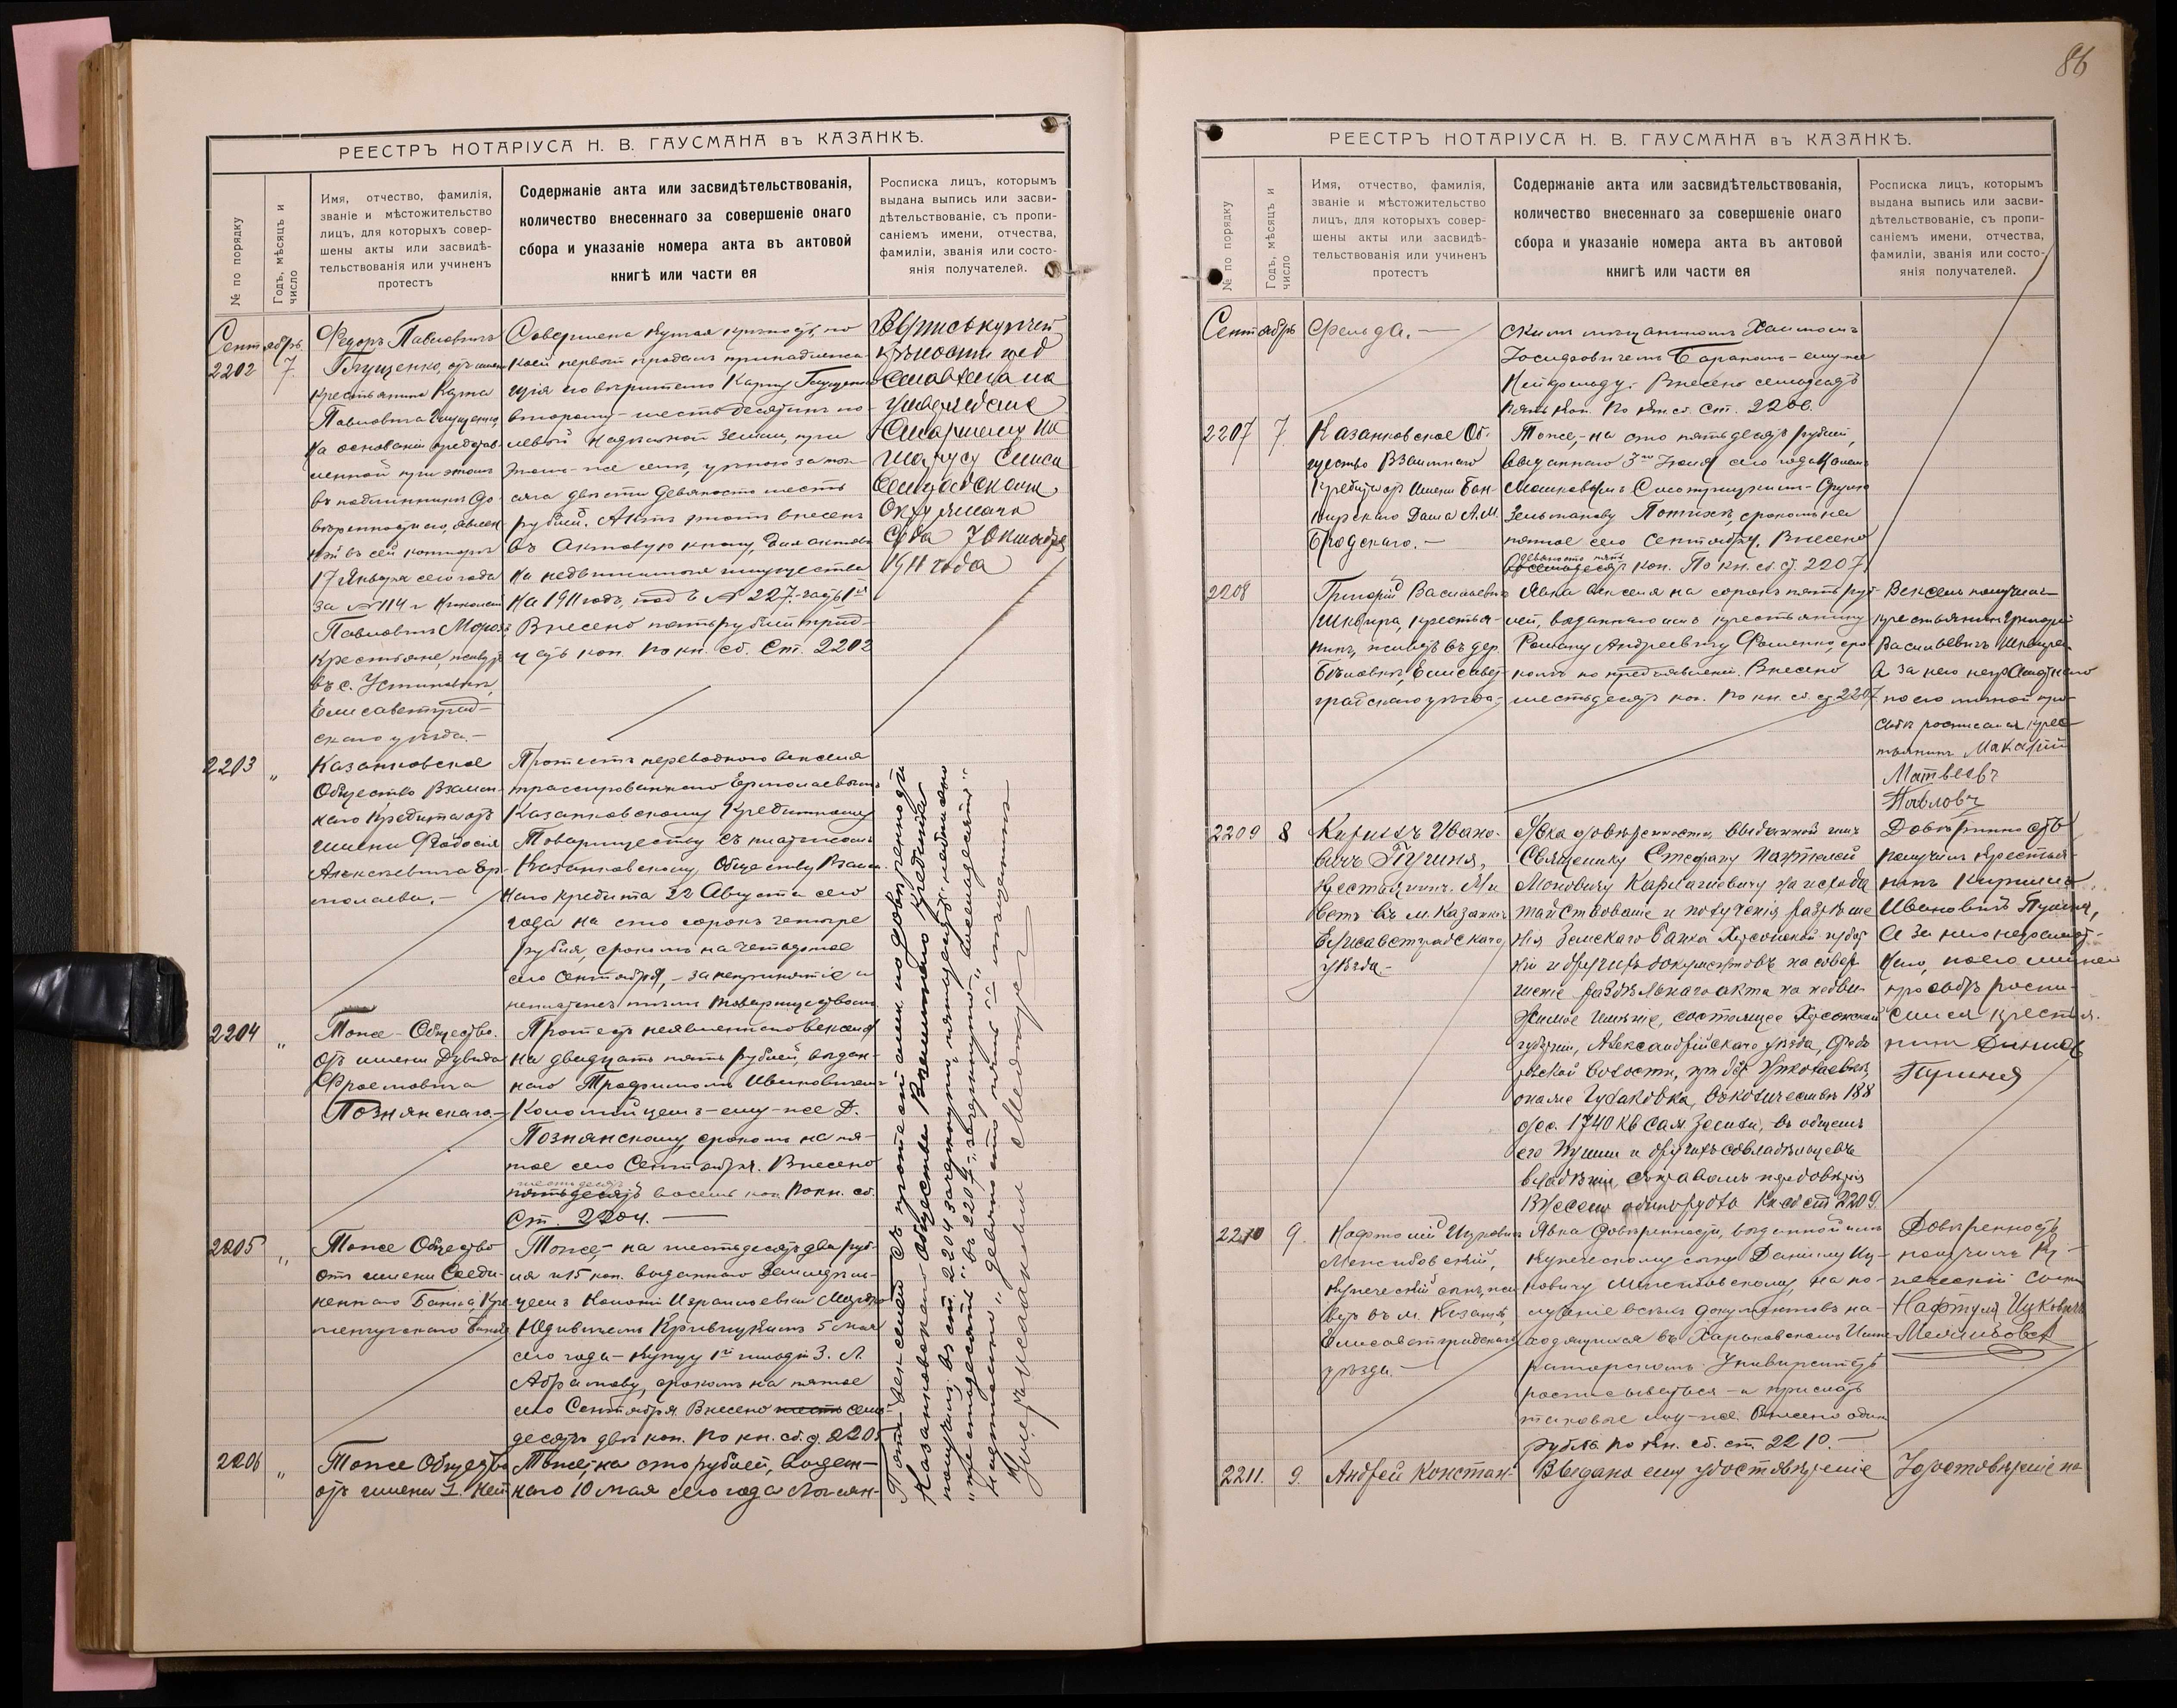 86
РЕЕСТРЪ НОТАРІУСА Н. В. ГАУСМАНА въ КАЗАНКѢ.
№ по порядку
Годъ, мѣсяцъ и
число
Имя, отчество, фамилія,
званіе и мѣстожительство
лицъ, для которыхъ совер-
шены акты или засвидѣ-
тельствованія или учиненъ
протестъ
Содержаніе акта или засвидѣтельствованія,
количество внесеннаго за совершеніе онаго
сбора и указаніе номера акта въ актовой
книгѣ или части ея
Росписка лицъ, которымъ
выдана выпись или засви-
дѣтельствованіе, съ пропи-
саніемъ имени, отчества,
фамиліи, званія или состо-
янія получателей.
Сентябрь
2202
7.
Федоръ Павловичъ
Глущенко,
крестьянина Карпа
Павловича Глущенко,
на основаніи представ-
ленной при этомъ
въ подлинникѣ до-
вѣренности его, явлен
ной въ сей конторѣ
17 Января сего года
за № 114 и
Павловичъ Морозъ
крестьяне, живутъ
въ с. Устиновкѣ,
Елисаветград-
скаго уѣзда.-
Совершена купчая крѣпость, по
коей первый продалъ принадлежа-
щія его вѣрителю Карпу Глущенко
второму - шесть десятинъ по-
левой надѣльной земли, при
томъ-же селѣ, цѣною за ты-
сяча двѣсти девяносто шесть
рублей. Актъ этотъ внесенъ
въ Актовую книгу, для актовъ
на недвижимыя имущества
на 1911 годъ, подъ № 227.- часть 1я
Внесено пять рублей трид-
цать коп. по кн. сб. Ст. 2202
Выпись купчей
крѣпости
отправлена на
утвержденіе
Старшему но
таріусу Елиса
ветградскаго
Окружнаго
Суда 7 Октября
1911 года
2203
"
Казанковское
Общество Взаим-
наго Кредита отъ
имени Феодосія
Алексѣевича Ер-
молаева.-
Протестъ переводного векселя
трассированнаго Ермолаевымъ
Казанковскому Кредитному
Товариществу съ платежомъ
Казанковскому Обществу Взаим-
наго Кредита 22 Августа сего
года на сто сорокъ четыре
рубля, срокомъ на четвертое
сего Сентября, - за непринятіе и
неплатежъ этимъ Товариществомъ
2204
"
Тоже - Общество.
отъ имени Дувида
Фроимовича
Познянскаго.-
Протестъ неявленнаго векселя
на двадцать пять рублей, выдан-
наго Трофимомъ Ивановичемъ
Коломийцемъ - ему-же Д.
Познянскому, срокомъ на пя-
тое сего Сентября. Внесено
шестьдесятъ
пятьдесятъ восемь коп. по кн. сб.
Ст. 2204.
2205
"
Тоже Общество
отъ имени Соеди-
неннаго Банка, Кре-
менчугскаго
Тоже,- на шестьдесятъ два руб-
ля и 15 коп. выданнаго
5 Мая
сего года - купцу 1й гильдіи З. Л.
Абрамову, срокомъ на пятое
сего Сентября. Внесено шесть семь-
десятъ двѣ коп. по кн. сб. с. 2205
2206
"
Тоже Общество
отъ имени I. Ней
Тоже, на сто рублей, выдан-
наго 10 Мая сего года
Пять векселей съ протестами по довѣренности
Казанковскаго Общества Взаимнаго Кредита
получилъ. Въ ст. 2204 зачеркнуто „пятьдесятъ", надписано
„шестьдесятъ" въ 2207 - зачеркнуто „восемьдесятъ"
надписано „девяносто пять"
РЕЕСТРЪ НОТАРІУСА Н. В. ГАУСМАНА въ КАЗАНКѢ.
№ по порядку
Годъ, мѣсяцъ и
число
Имя, отчество, фамилія,
званіе и мѣстожительство
лицъ, для которыхъ совер-
шены акты или засвидѣ-
тельствованія или учиненъ
протестъ
Содержаніе акта или засвидѣтельствованія,
количество внесеннаго за совершеніе онаго
сбора и указаніе номера акта въ актовой
книгѣ или части ея
Росписка лицъ, которымъ
выдана выпись или засви-
дѣтельствованіе, съ пропи-
саніемъ имени, отчества,
фамиліи, званія или состо-
янія получателей.
Сентябрь
фельда.-
скимъ мѣщаниномъ Хаимомъ
Іосифовичемъ Бараномъ - ему-же
Нейфельду. Внесено семьдесятъ
пять коп. по кн. сб. Ст. 2206.
2207
7
Казанковское Об-
щество Взаимнаго
Кредита отъ имени Бан-
кирскаго Дома А. М.
Бродскаго.-
Тоже,- на сто пятьдесятъ рублей,
выданнаго 3го Іюля сего года
срокомъ на
пятое сего Сентября. Внесено
девяносто пять
восемьдесятъ коп. По кн. сб. ст. 2207
2208
Григорій Васильевичъ
Шквира, крестья-
нинъ, живетъ въ дер.
Бѣловкѣ, Елисавет-
градскаго уѣзда,-
Явка векселя на сорокъ пять руб-
лей, выданнаго имъ крестьянину
Роману Андреевичу Фоменко, сро-
комъ по предъявленіи. Внесено
шестьдесятъ коп. по кн. сб. ст. 2207
Вексель получилъ
крестьянинъ Григорій
Васильевичъ Шквира
а за него неграмотнаго
по его личной про-
сьбѣ росписался крес-
тьянинъ Макарій
Матвѣевъ
Павловъ
2209
8
Кирилъ Ивано-
вичъ Пугиня,
крестьянинъ. Жи
ветъ въ м. Казанкѣ
Елисаветградскаго
уѣзда.-
Явка довѣренности, выданной имъ
Священику Стефану Пантелей
моновичу на исхода
тайствованіе и полученія разрѣше
нія Земскаго Банка Херсонской губер
ніи и другихъ документовъ на совер
шеніе раздѣльнаго акта на недви
жимое имѣніе, состоящее Херсонской
губерніи, Александрійскаго уѣзда,
волости, при дер. Николаевкѣ,
онаже Чубаковка, въ количествѣ 188
дес. 1740 кв саж. земли, въ общемъ
его Пугини и другихъ совладѣльцевъ
владѣніи, съ правомъ передовѣрія
Внесено одинъ рубль кн сб ст 2209.
Довѣренность
получилъ крестья-
нинъ Кирилъ
Ивановичъ Пугиня,
а за него неграмот-
наго, по его личной
просьбѣ роспи-
сался крестья-
нинъ
Пугиня
2210
9.
Нафтолій Ицковичъ
Межибовскій,
купеческій сынъ, жи
ветъ въ м. Казанкѣ,
Елисаветградскаго
уѣзда.
Явка довѣренности, выданной имъ
купеческому сыну Данилу Иц-
ковичу Межибовскому, на по-
лученіе всѣхъ документовъ на-
ходящихся въ Харьковскомъ Импе
раторскомъ Университетѣ
росписываться - и прислать
таковые ему-же. Внесено одинъ
рубль по кн. сб. ст. 2210.-
Довѣренность
получилъ Ку-
печескій сынъ
Нафтула Ицковичъ
Межибовск
2211.
9.
Андрей Констан-
Выдано ему удостовѣреніе
Удостовѣреніе по